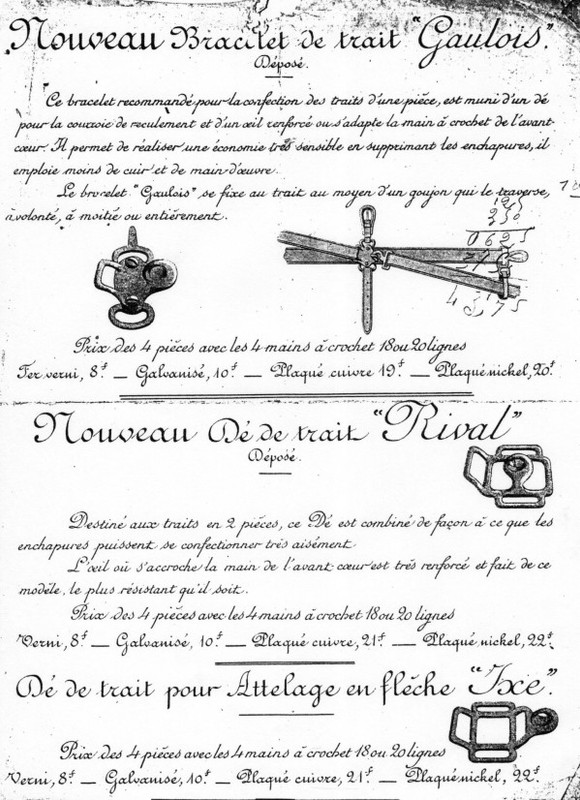 Nouveau Bracelet de trait "Gaulois".
Déposé.
Ce bracelet recommandé pour la confection des traits d'une pièce, est muni d'un dé
pour la courroie de reculement et d'un œil renforcé ou s'adapte la main à crochet de l'avant-
cœur. Il permet de réaliser une économie très sensible en supprimant les enchapures, il
emploie moins de cuir et de main d'œuvre.
Le bracelet "Gaulois" se fixe au trait au moyen d'un goujon qui le traverse,
à volonté, à moitié ou entièrement.
250
0625
4375
Prix des 4 pièces avec les 4 mains à crochet 18 ou 20 lignes
Fer verni, 8f. — Galvanisé, 10f. — Plaqué cuivre 19f. — Plaqué nickel, 20f.
Nouveau Dé de trait "Rival"
Déposé.
Destiné aux traits en 2 pièces, ce Dé est combiné de façon à ce que les
enchapures puissent se confectionner très aisément.
L'œil où s'accroche la main de l'avant cœur est très renforcé et fait de ce
modèle, le plus résistant qu'il soit.
Prix des 4 pièces avec les 4 mains à crochet 18 ou 20 lignes
Verni, 8f. — Galvanisé, 10f. — Plaqué cuivre, 21f. — Plaqué nickel, 22f.
Dé de trait pour Attelage en flèche "Ixe".
Prix des 4 pièces avec les 4 mains à crochet 18 ou 20 lignes
Verni, 8f. — Galvanisé, 10f. — Plaqué cuivre, 21f. — Plaqué nickel, 22f.